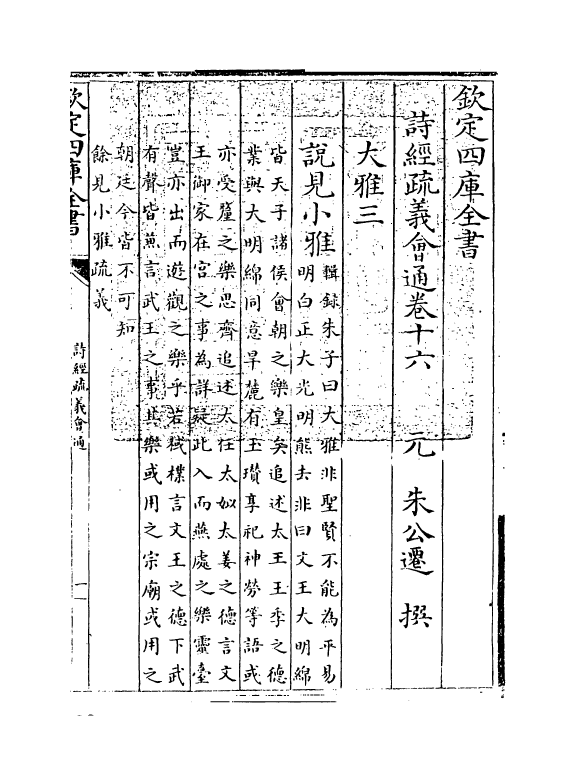 欽定四庫全書
詩經疏義會通卷十六　元　朱公遷　撰
大雅三
說見小雅
輯録朱子曰大雅非聖賢不能為平易
明白正大光明熊去非曰文王大明綿
皆天子諸侯會朝之樂皇矣追述太王王季之德
業與大明綿同意旱麓有玉瓚享祀神勞等語或
亦受釐之樂思齊追述太任太姒太姜之德言文
王御家在宮之事為詳疑此入而燕處之樂靈臺
豈亦出而遊觀之樂乎若棫樸言文王之德下武
有聲皆兼言武王之事其樂或用之宗廟或用之
朝廷今皆不可知
餘見小雅疏義
欽定四庫全書
詩經疏義會通
一